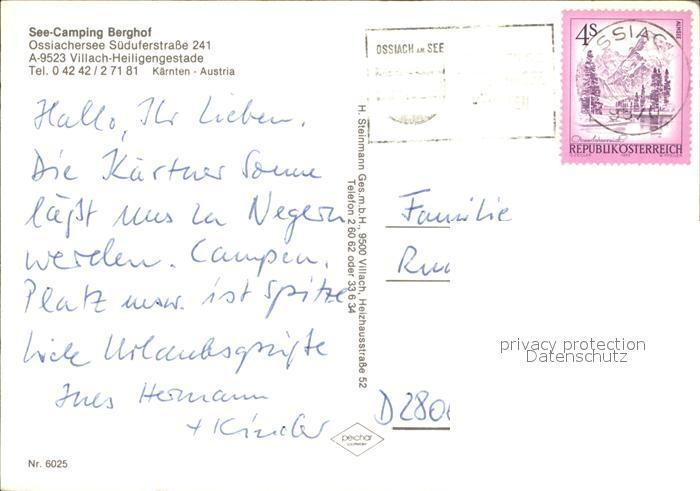 See-Camping Berghof
Ossiachersee Süduferstraße 241
A-9523 Villach-Heiligengestade
Tel. 0 42 42 / 2 71 81 Kärnten - Austria
Hallo, Ihr Lieben.
Die Kärtner Sonne
läßt uns zu Negern
werden. Campen,
Platz usw. ist Spitze
Viele Urlaubsgrüße
Ines Hermann
+ Kinder
Nr. 6025
H. Steinmann Ges.m.b.H., 9500 Villach, Heizhausstraße 52
Telefon 2 60 62 oder 33 6 34
peichar
OSSIACH AM SEE
OSSIAC
4S
ALMSEE
REPUBLIK ÖSTERREICH
Familie
D 280
privacy protection
Datenschutz